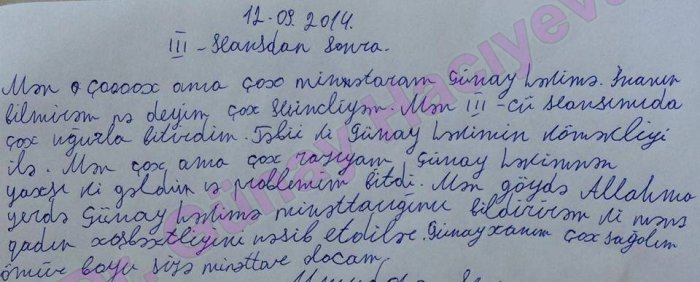 12.09.2014.
III - seansdan sonra.
Mən çooooox ama çox minnətaram Günay həkimə. İnanın
bilmirəm nə deyim çox sevincliyəm. Mən III-cü seansımıda
çox uğurla bitirdim. Təbii ki Günay həkimin köməkliyi
ilə. Mən çox ama çox razıyam Günay həkimnən
yaxşı ki gəldim və problemim bitdi. Mən göydə Allahıma
yerdə Günay həkimə minəttarlığımı bildirirəm ki mənə
qadın xoşbəxtliyini nəsib etdilər. Günay xanım çox sağolun
ömür boyu sizə minəttar olacam
Dr. Günay Hacıyeva